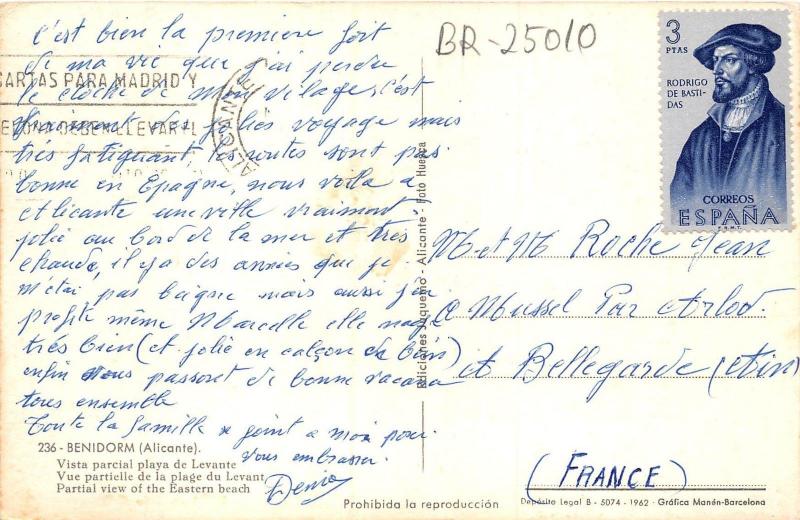 C'est bien la premiere foit
de ma vie que j'ai perdu
le cloche de mon vilage, c'est
vraiment de jolies voyage mais
très fatiguant, les routes sont pas
bonne en Epagne, nous voila a
alicante une ville vraiment
jolie au bord de la mer et très
chaude, il y a des années que je
m'étai pas baigne mais aussi j'ai
profité même Marcelle elle nage
très bien (et jolie en calçon de bain)
enfin nous passont de bonne vacance
tous ensemble
Toute la famille se joint a moi pour
vous embrasser.
Denise
236 - BENIDORM (Alicante).
Vista parcial playa de Levante
Vue partielle de la plage du Levant
Partial view of the Eastern beach
CARTAS PARA MADRID Y
DEBEN LLEVAR
ALICANTE
Ediciones - Alicante - Foto Huesca
Prohibida la reproducción
BR-25010
3
PTAS
RODRIGO
DE BASTI-
DAS
CORREOS
ESPAÑA
F.N.M.T.
M et M Roche Jean
a Mussel Par Arlod.
et Bellegarde (Ain)
(FRANCE)
Depósito Legal B - 5074 - 1962 - Gráfica Manén-Barcelona